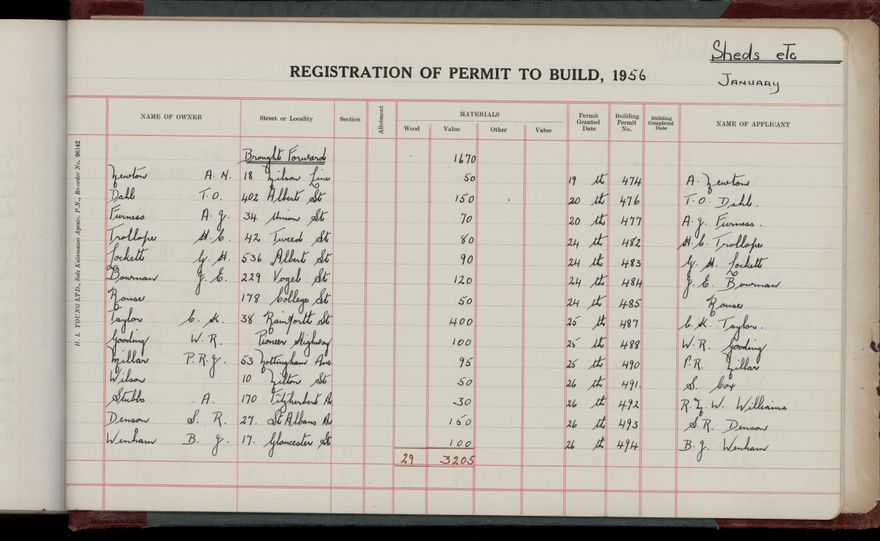 Sheds etc
REGISTRATION OF PERMIT TO BUILD, 1956
JANUARY
NAME OF OWNER Street or Locality Section Allotment MATERIALS Permit Granted Date Building Permit No. Building Completed Date NAME OF APPLICANT
Wood Value Other Value
H. L. YOUNG LTD., Sole Kalamazoo Agents, P.N., Re-order No. 96142
Brought Forward 1670
Newton A. N. 18 Line 50 19 th 474 A. Newton
Dahl T. O. 402 Albert St 150 20 th 476 T. O. Dahl.
Furness A. J. 34 Union St 70 20 th 477 A. J. Furness.
Trollope H. C. 42 Tweed St 80 24 th 482 H. C. Trollope
Lockett G. H. 536 Albert St 90 24 th 483 G. H. Lockett
Bowman J. E. 229 Vogel St 120 24 th 484 J. E. Bowman
Rouse 178 College St 50 24 th 485 Rouse
Taylor C. K. 38 Rainforth St 400 25 th 487 C. K. Taylor.
Gooding W. R. Pioneer Highway 100 25 th 488 W. R. Gooding
Millar P. R. J. 53 Nottingham Ave 95 25 th 490 P. R. Millar
Wilson 10 Milton St 50 26 th 491. S. Cox
Stubbs A. 170 Fitzherbert Av 30 26 th 492 W. Williams
Denson S. R. 27. St Albans Av 150 26 th 493 S. R. Denson
Wenham B. J. 17. Gloucester St 100 26 th 494 B. J. Wenham
29 3205